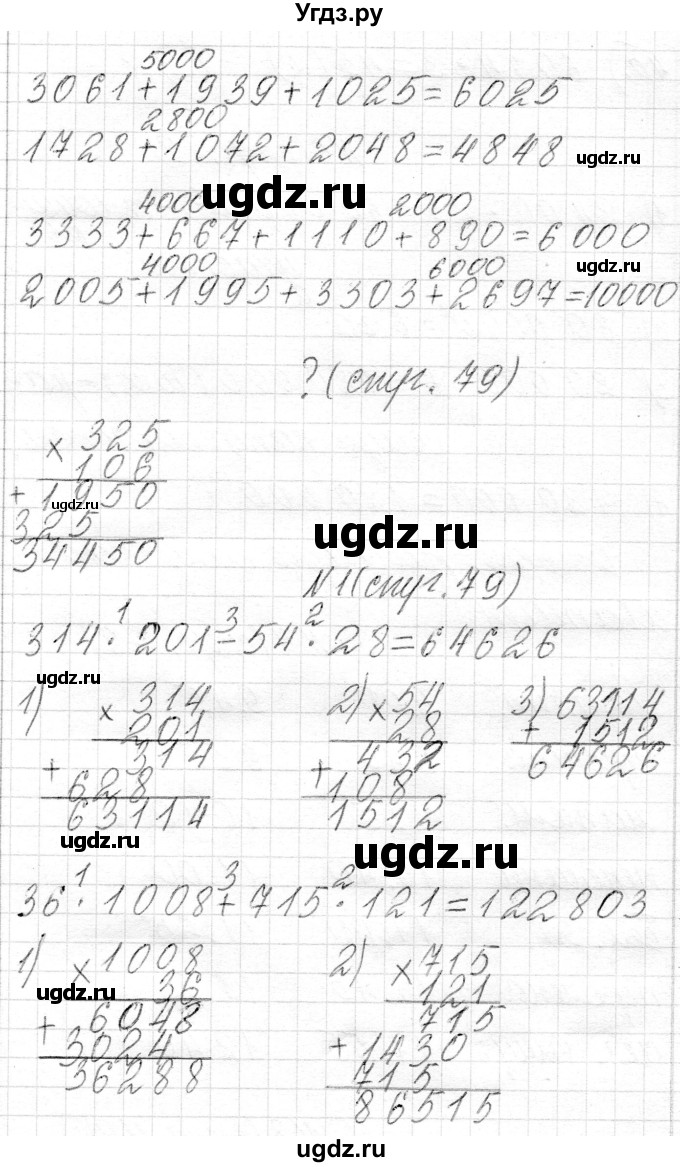 Угдз.ру
5000
3061+1939+1025=6025
2800
1728+1072+2048=4848
ugdz.ru
ugdz.ru
4000 2000
3333+667+1110+890=6000
ugdz.ru
4000 6000
2005+1995+3303+2697=10000
?(стр. 79)
× 325
106
+ 1950
ugdz.ru
325
34450
ugdz.ru
№1(стр. 79)
1 3 2
314·201-54·28=64626
ugdz.ru
1) × 314
201
314
+ 628
63114
2) × 54
28
432
+ 108
1512
3) 63114
+ 1512
64626
ugdz.ru
ugdz.ru
1 3 2
36·1008+715·121=122803
1) × 1008
36
ugdz.ru
6048
+ 3024
36288
2) × 715
121
715
+ 1430
715
86515
ugdz.ru